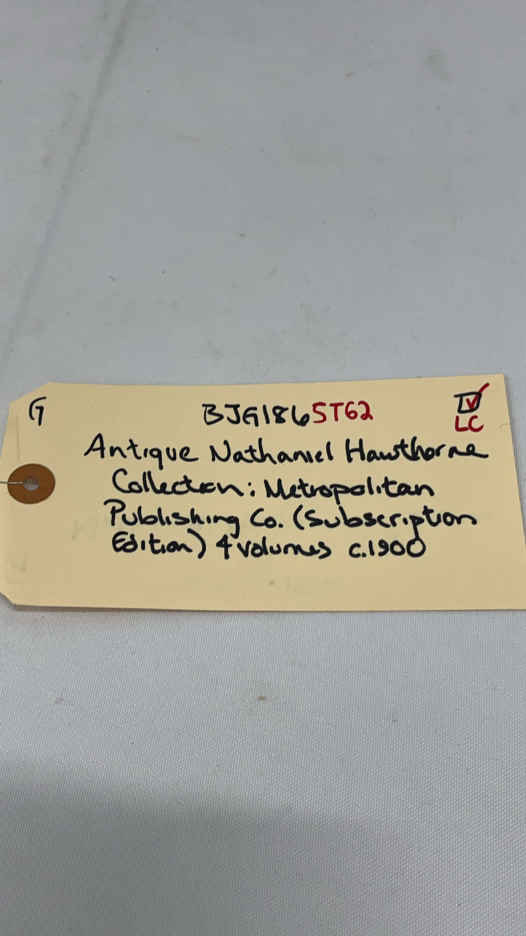 G BJG186 ST62 ☑
LC
Antique Nathaniel Hawthorne
Collection: Metropolitan
Publishing Co. (Subscription
Edition) 4 volumes c.1900